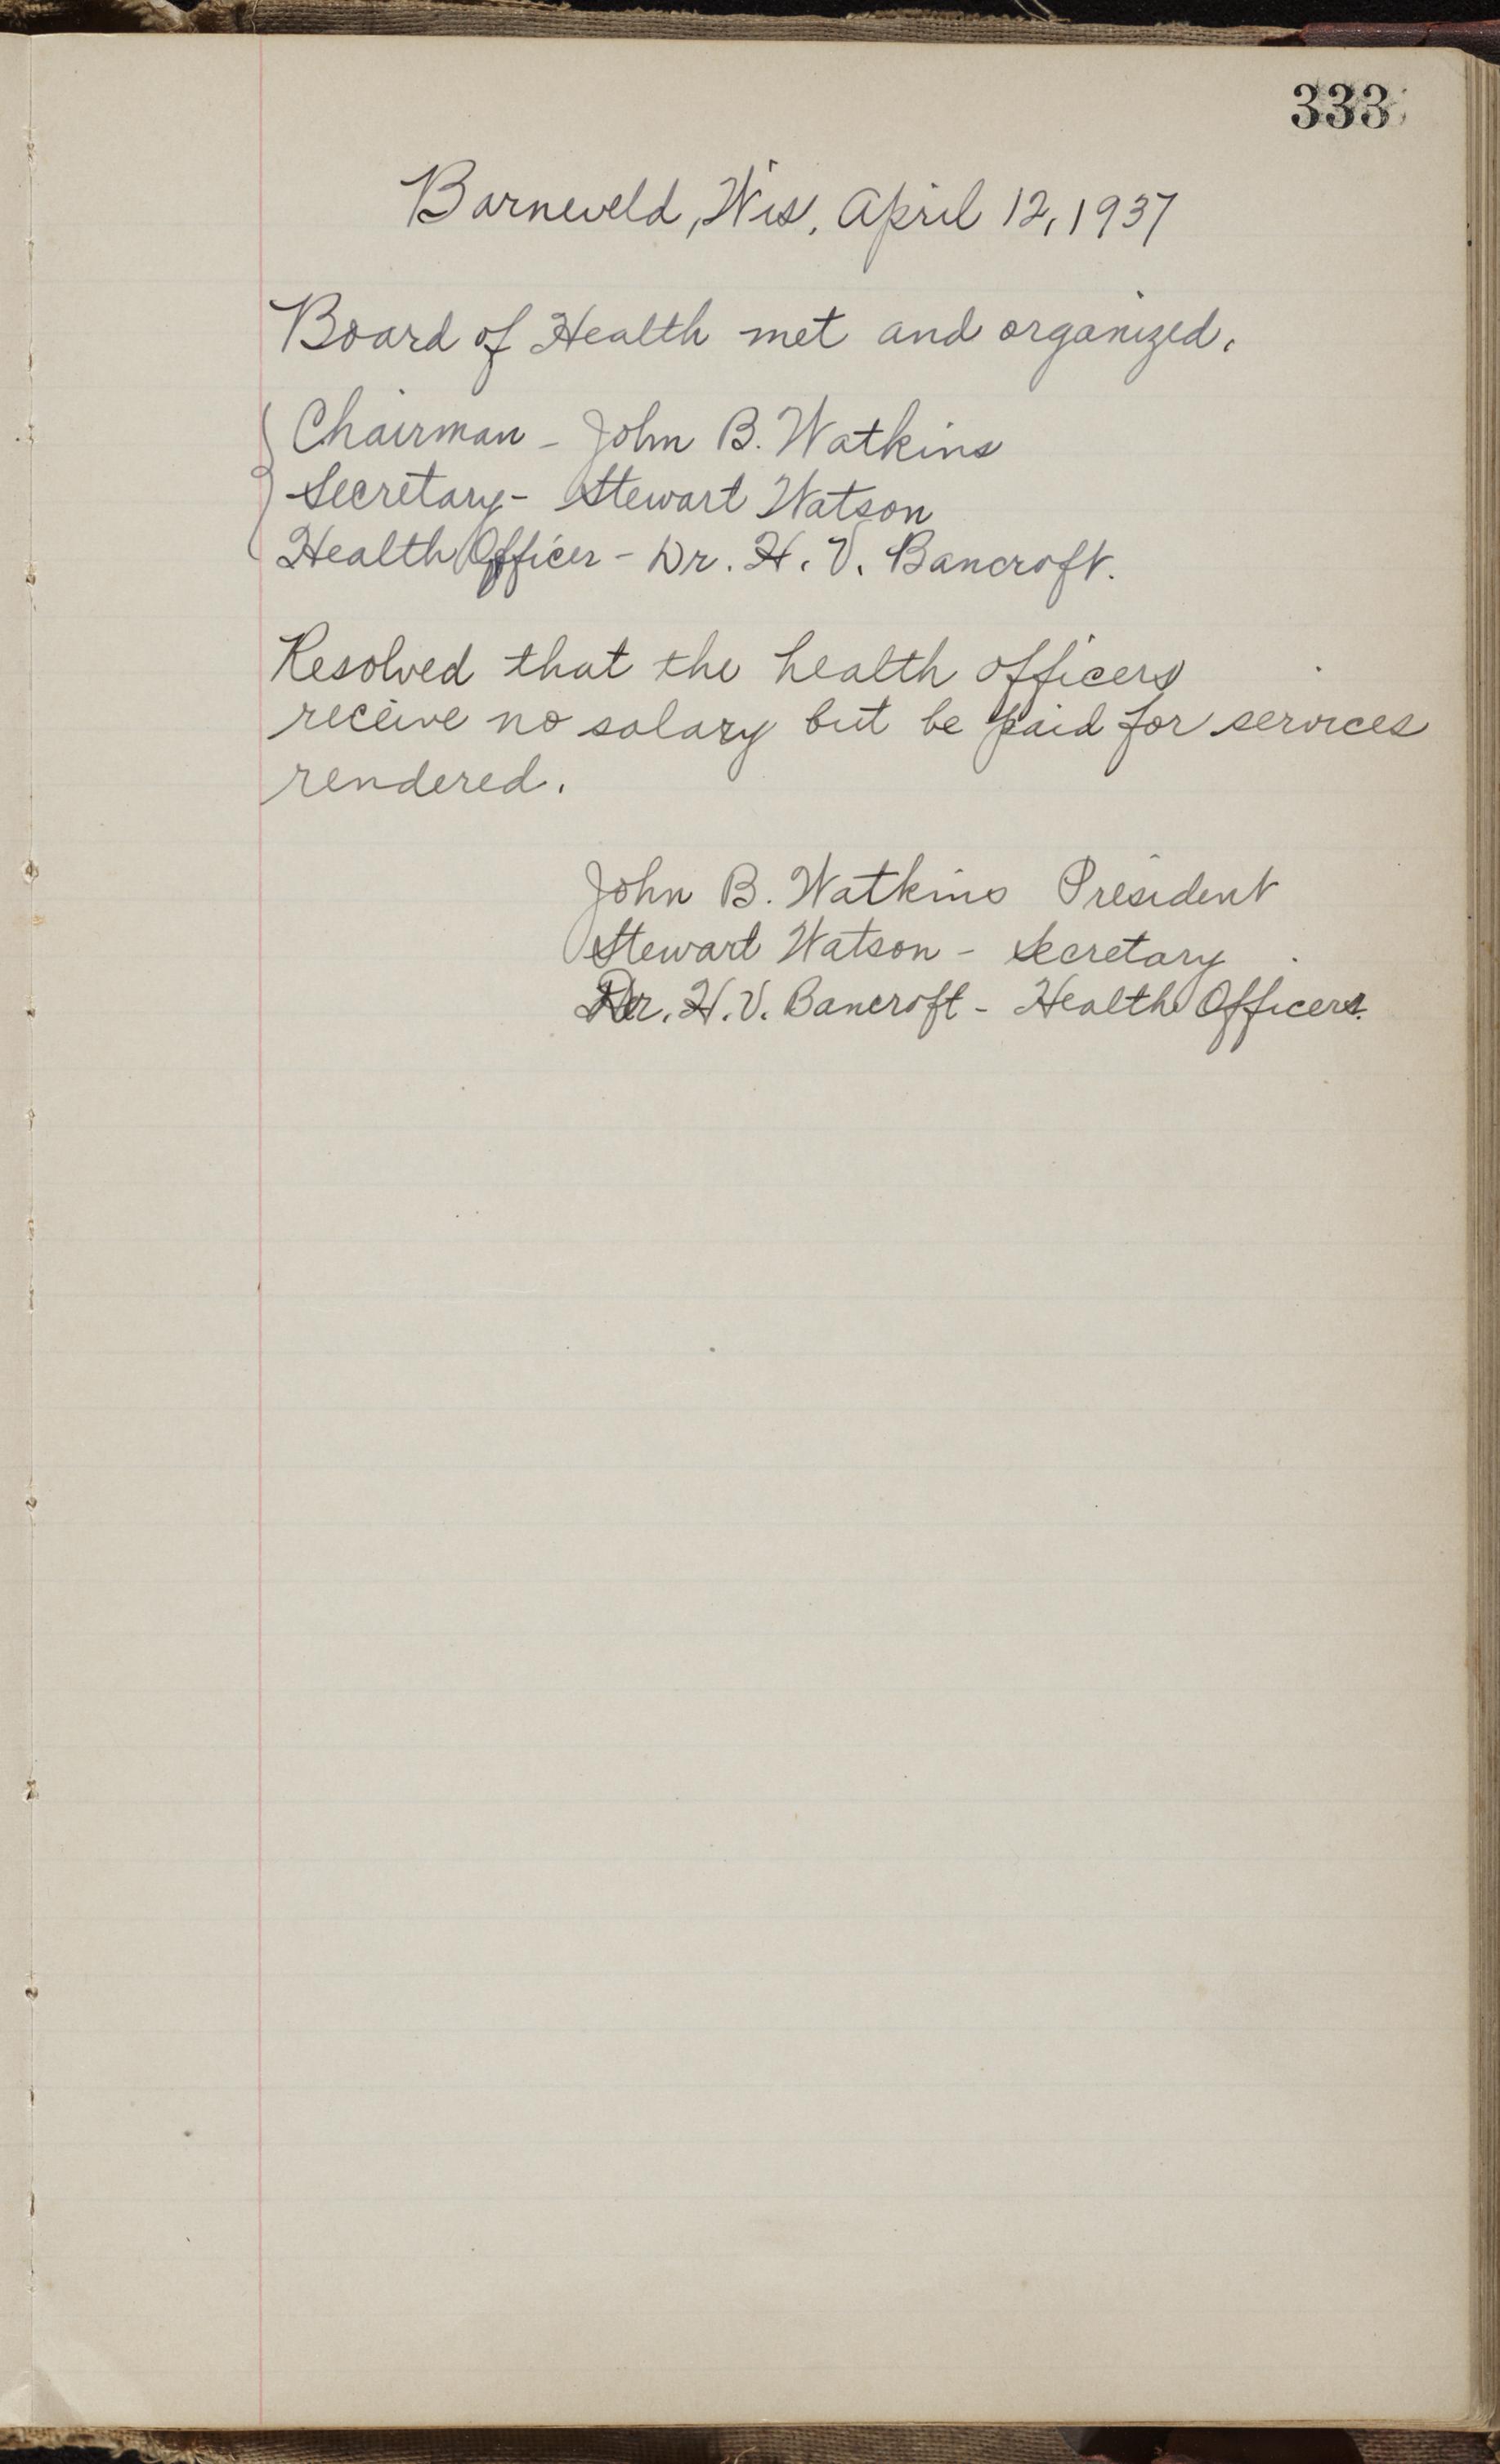 333
Barneveld, Wis, April 12, 1937
Board of Health met and organized.
Chairman - John B. Watkins
Secretary - Stewart Watson
Health Officer - Dr. H. V. Bancroft.
Resolved that the health officers
receive no salary but be paid for services
rendered.
John B. Watkins President
Stewart Watson - Secretary
Dr. H. V. Bancroft - Health Officer.